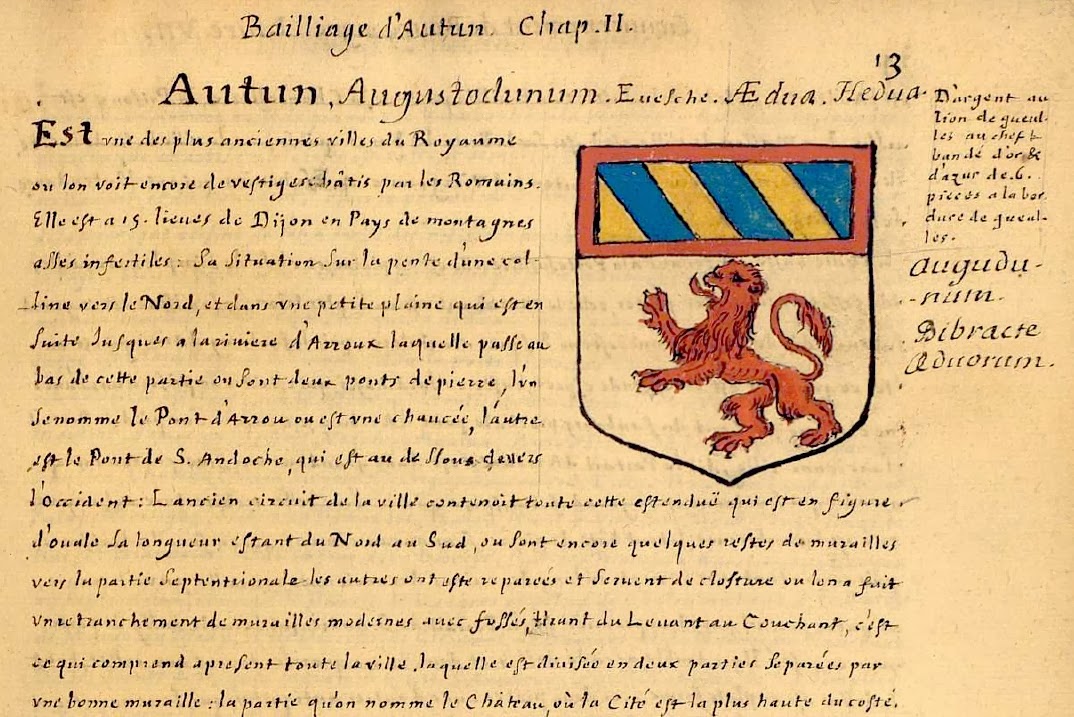 Bailliage d'Autun. Chap. II.
13
Autun, Augustodunum. Evesche. Ædua. Hedua.
Est vne des plus anciennes villes du Royaume
ou lon voit encore de vestiges bâtis par les Romains.
Elle est a 15. lieues de Dijon en Pays de montagnes
asses infertiles: Sa Situation Sur la pente d'une col-
line vers le Nord, et dans vne petite plaine qui est en
Suite Jusques a la riviere d'Arroux laquelle passe au
bas de cette partie ou Sont deux ponts de pierre, l'vn
Se nomme le Pont d'Arrou ou est vne chaucée, l'autre
est le Pont de S. Andoche, qui est au dessous devers
l'occident: L'ancien circuit de la ville contenoit toute cette estenduë qui est en figure
d'ouale Sa longueur estant du Nord au Sud, ou Sont encore quelques restes de murailles
vers la partie Septentrionale les autres ont esté reparées et Servent de closture ou lon a fait
vn retranchement de murailles modernes avec fossés, tirant du Levant au Couchant, c'est
ce qui comprend apresent toute la ville. laquelle est divisée en deux parties Separées par
vne bonne muraille: la partie qu'on nomme le Château, où la Cité est la plus haute du costé.
D'argent au
lion de gueul-
les au chef
bandé d'or &
d'azur de 6.
pieces a la bor
dure de gueul-
les.
Augudu-
-num.
Bibracte
Æduorum.